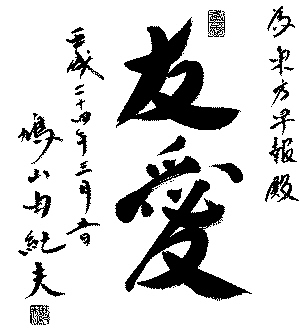 為東方早報殿
友愛
平成二十四年三月五日
鳩山由紀夫